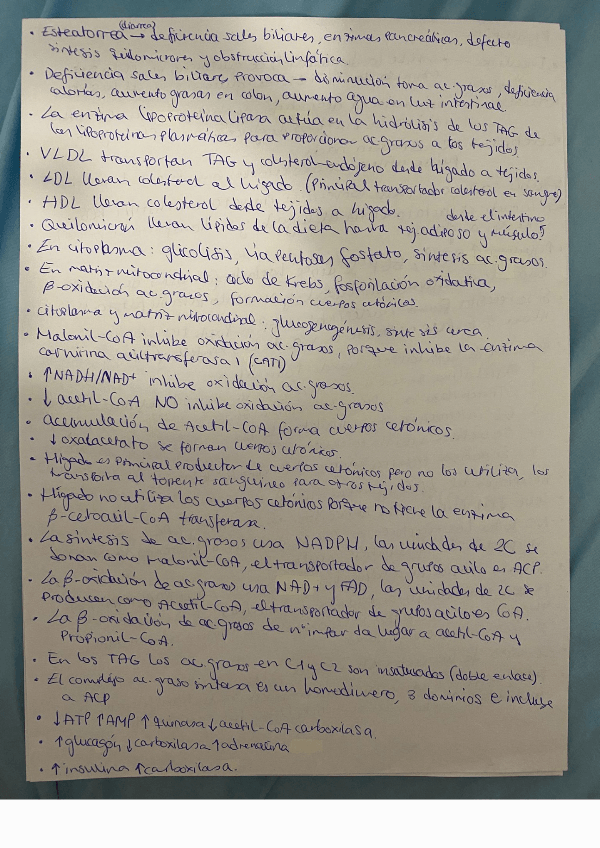 (diarrea)
• Esteatorrea → deficiencia sales biliares, enzimas pancreáticas, defecto
síntesis quilomicrones y obstrucción linfática.
• Deficiencia sales biliares provoca → disminución toma ac. grasos, deficiencia
calorías, aumento grasas en colon, aumento agua en luz intestinal
• La enzima lipoproteína lipasa actúa en la hidrólisis de los TAG de
las lipoproteínas plasmáticas para proporcionar ac. grasos a los tejidos
• VLDL transportan TAG y colesterol endógeno desde hígado a tejidos.
• LDL llevan colesterol al hígado. (Principal transportador colesterol en sangre)
• HDL llevan colesterol desde tejidos a hígado.
desde el intestino
• Quilomicrones llevan lípidos de la dieta hasta tej. adiposo y músculo
• En citoplasma: glicolisis, vía pentosas fosfato, síntesis ac. grasos.
• En matriz mitocondrial: ciclo de Krebs, fosforilación oxidativa,
β-oxidación ac. grasos, formación cuerpos cetónicos.
• citoplasma y matriz mitocondrial: gluconeogénesis, síntesis urea.
• Malonil-CoA inhibe oxidación ac. grasos, porque inhibe la enzima
carnitina aciltransferasa 1 (CAT1)
• ↑NADH/NAD+ inhibe oxidación ac. grasos.
• ↓ acetil-CoA NO inhibe oxidación ac. grasos
• acumulación de Acetil-CoA forma cuerpos cetónicos.
• ↓ oxalacetato se forman cuerpos cetónicos.
• Hígado es principal productor de cuerpos cetónicos pero no los utiliza, los
transporta al torrente sanguíneo para otros tejidos.
• Hígado no utiliza los cuerpos cetónicos porque no tiene la enzima
β-cetoacil-CoA transferasa.
• La síntesis de ac. grasos usa NADPH, las unidades de 2C se
donan como Malonil-CoA, el transportador de grupos acilo es ACP.
• La β-oxidación de ac. grasos usa NAD+ y FAD, las unidades de 2C se
producen como Acetil-CoA, el transportador de grupos acilo es CoA.
• La β-oxidación de ac. grasos de nº impar da lugar a acetil-CoA y
Propionil-CoA.
• En los TAG los ac. grasos en C1 y C2 son insaturados (doble enlace).
• El complejo ac. graso sintasa es un homodímero, 3 dominios e incluye
a ACP
• ↓ATP ↑AMP ↑quinasa ↓ acetil-CoA carboxilasa.
• ↑glucagón ↓carboxilasa ↑adrenalina
• ↑insulina ↑carboxilasa.